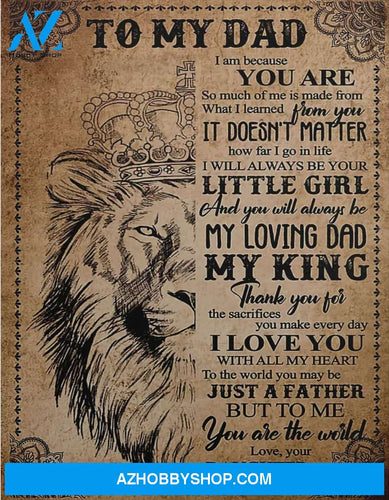 AZ
TO MY DAD
I am because
YOU ARE
So much of me is made from
What I learned from you
IT DOESN'T MATTER
how far I go in life
I WILL ALWAYS BE YOUR
LITTLE GIRL
And you will always be
MY LOVING DAD
MY KING
Thank you for
the sacrifices
you make every day
I LOVE YOU
WITH ALL MY HEART
To the world you may be
JUST A FATHER
BUT TO ME
You are the world
Love, your
AZHOBBYSHOP.COM